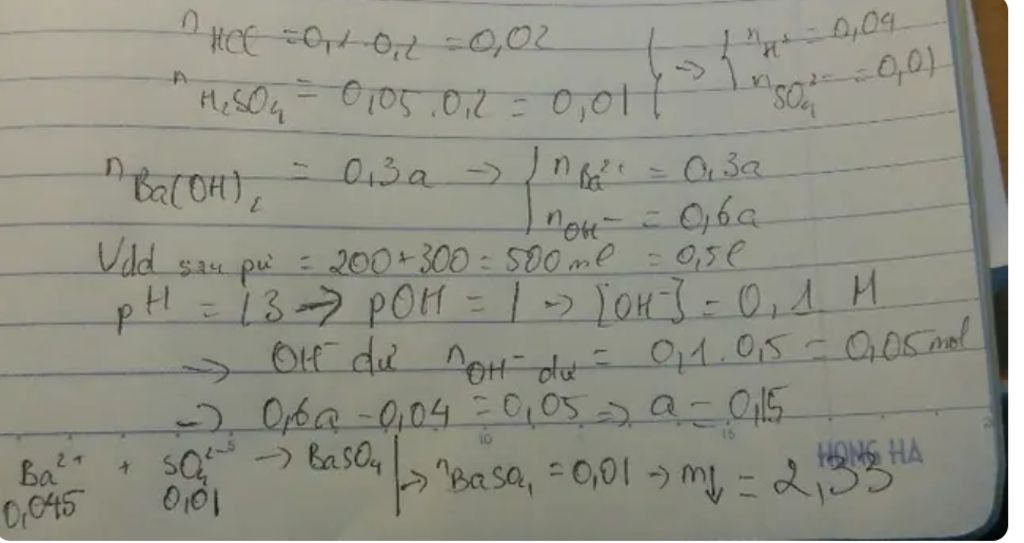 nHCl = 0,1.0,2 = 0,02
nH₂SO₄ = 0,05.0,2 = 0,01 } → { nH⁺ = 0,04
nSO₄²⁻ = 0,01
nBa(OH)₂ = 0,3a → { nBa²⁺ = 0,3a
nOH⁻ = 0,6a
Vdd sau pứ = 200+300 = 500ml = 0,5l
pH = 13 → pOH = 1 → [OH⁻] = 0,1 M
→ OH⁻ dư nOH⁻ dư = 0,1.0,5 = 0,05mol
→ 0,6a - 0,04 = 0,05 → a = 0,15
10 15
HONG HA
Ba²⁺ + SO₄²⁻ → BaSO₄ | → nBaSO₄ = 0,01 → m↓ = 2,33
0,045 0,01